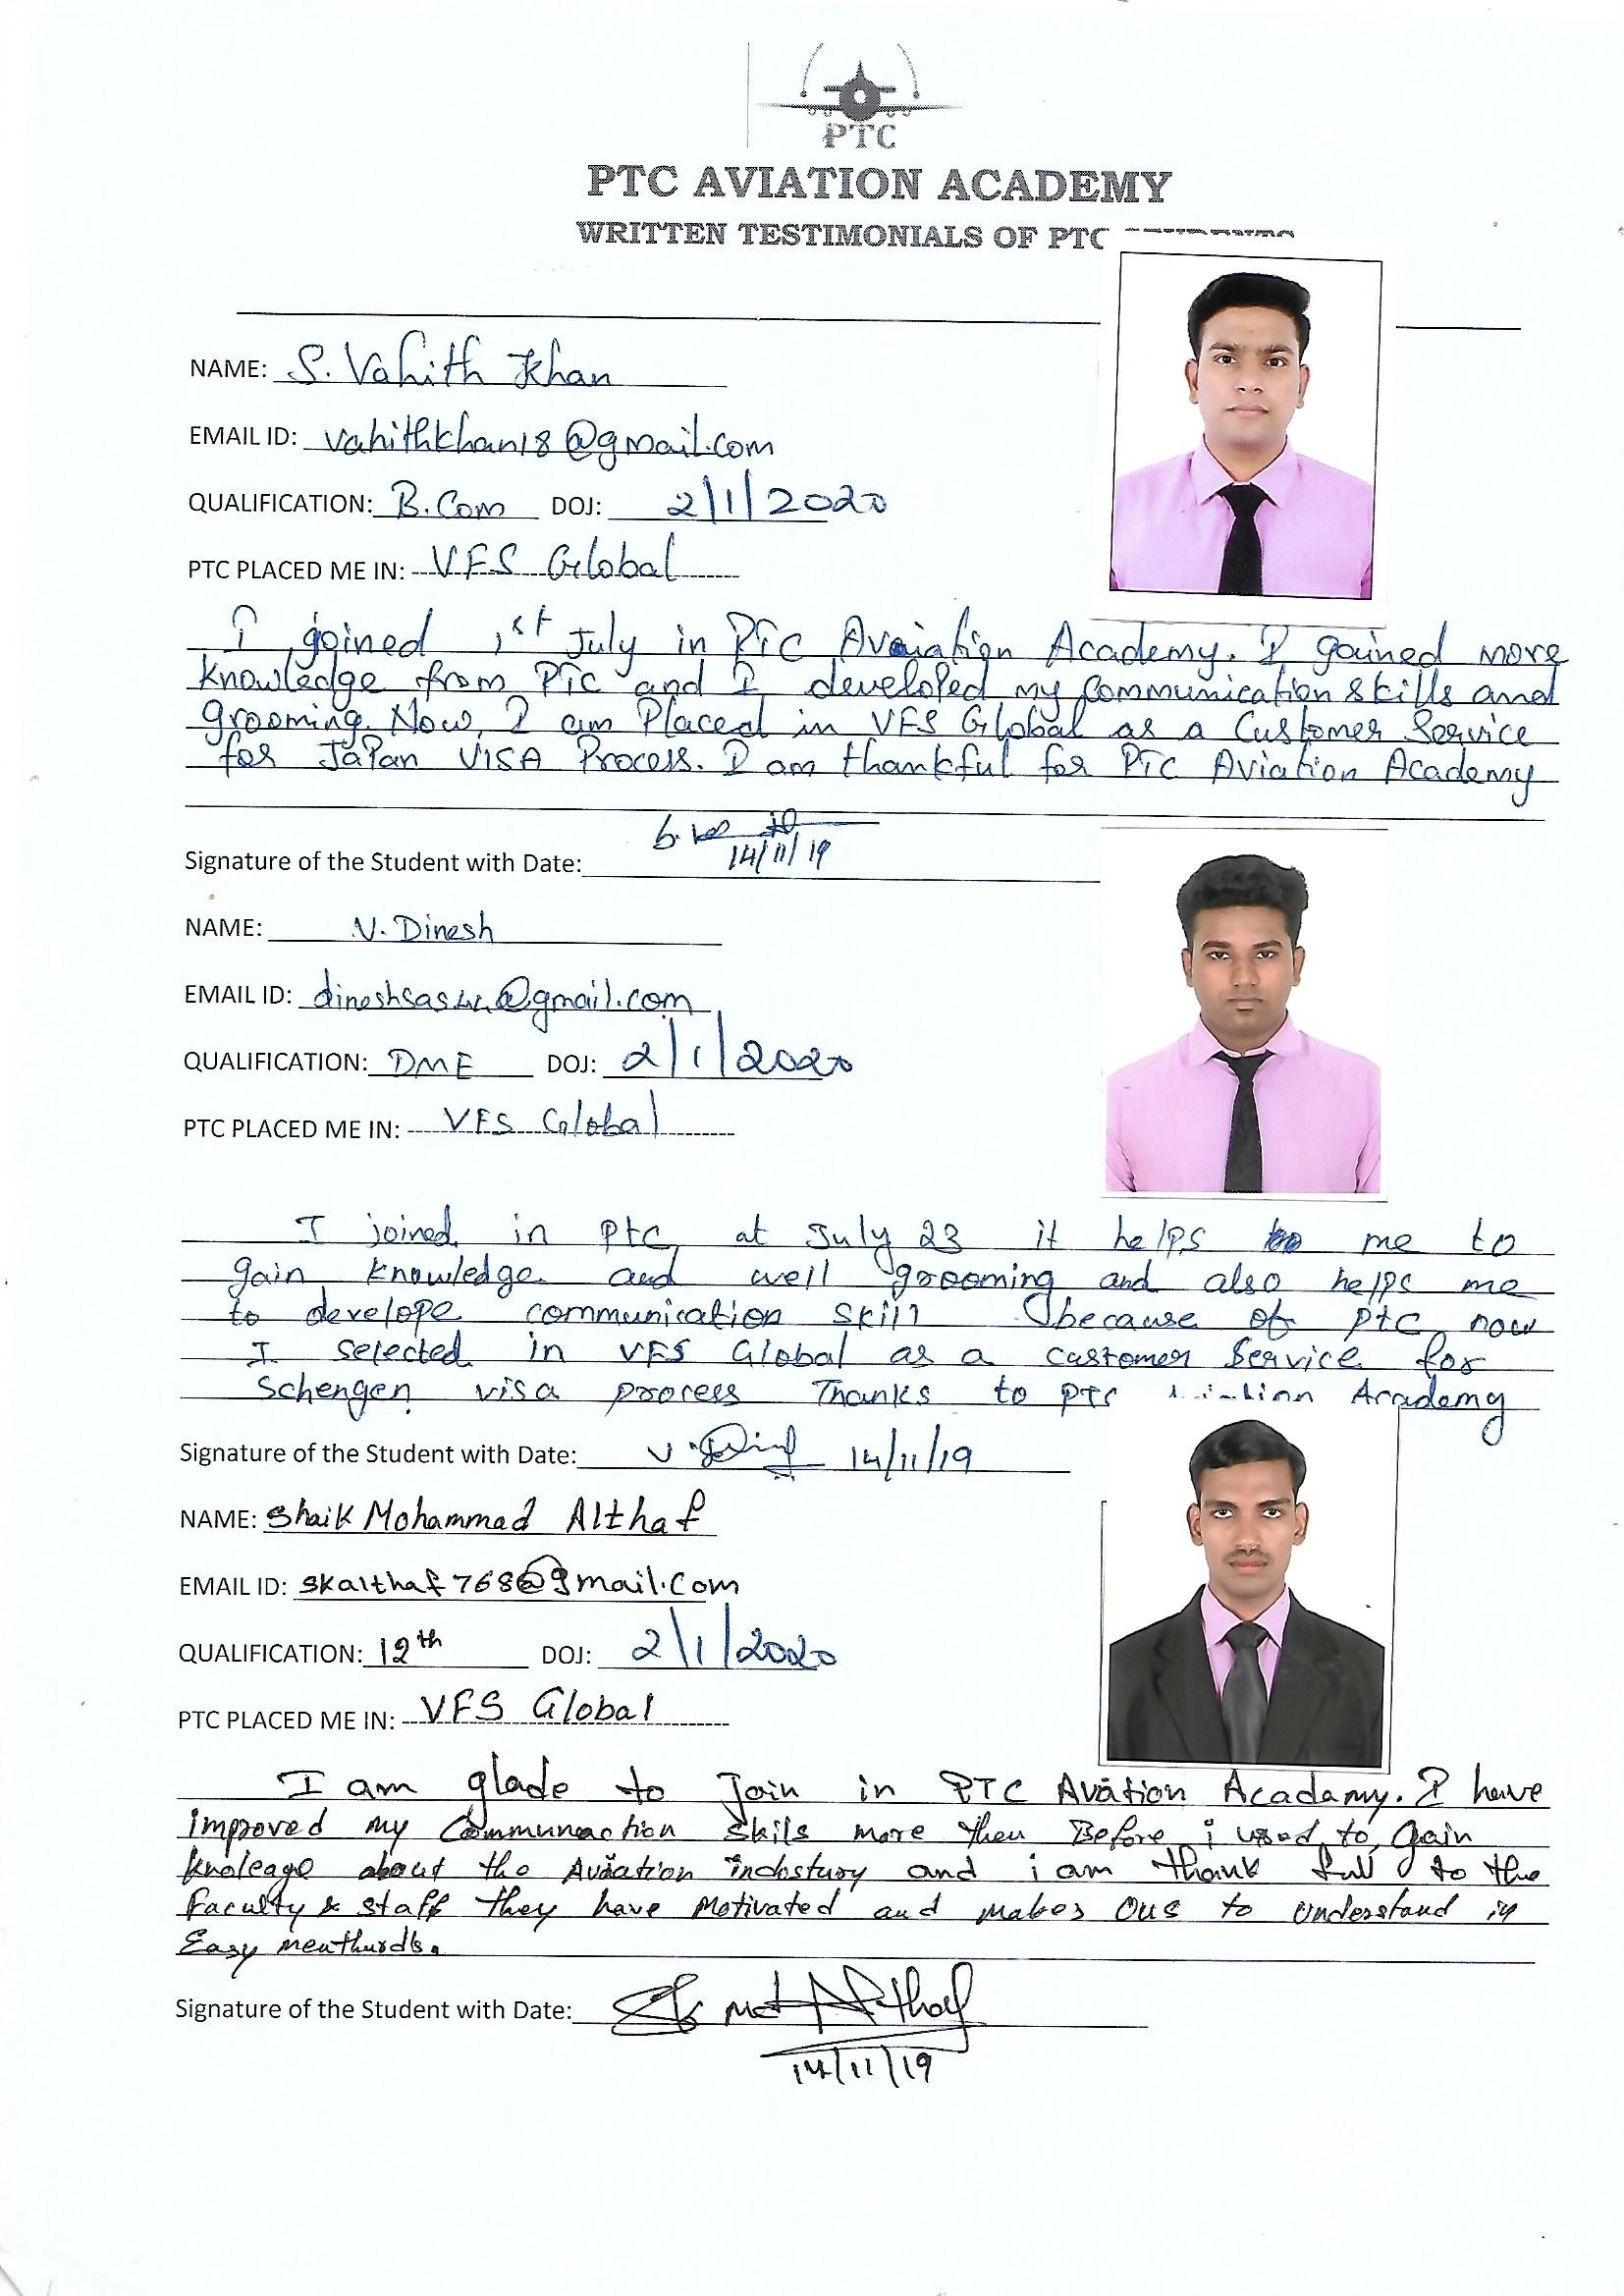 PTC
PTC AVIATION ACADEMY
WRITTEN TESTIMONIALS OF PTC STUDENTS
NAME: S. Vahith Khan
EMAIL ID: vahithkhan18@gmail.com
QUALIFICATION: B.Com DOJ: 2/1/2020
PTC PLACED ME IN: VFS Global
I joined 1st July in PTC Aviation Academy. I gained more
knowledge from PTC and I developed my Communication skills and
grooming. Now, I am Placed in VFS Global as a Customer Service
for JaPan VISA Process. I am thankful for PTC Aviation Academy
Signature of the Student with Date: 14/11/19
NAME: V. Dinesh
EMAIL ID: @gmail.com
QUALIFICATION: DME DOJ: 2/1/2020
PTC PLACED ME IN: VFS Global
I joined in Ptc at July 23 it helps me to
gain knowledge and well grooming and also helps me
to develope communication skill because of Ptc now
I selected in VFS Global as a customer Service for
Schengen visa process Thanks to PTC Aviation Academy
Signature of the Student with Date: V. 14/11/19
NAME: Shaik Mohammad Althaf
EMAIL ID: skalthaf768@gmail.com
QUALIFICATION: 12th DOJ: 2/1/2020
PTC PLACED ME IN: VFS Global
I am glade to Join in PTC Avation Academy. I have
improved my Communaction skils more then Before i used to gain
knoleage about the Aviation indostury and i am thank full to the
Faculty & staff they have Motivated and makes Ous to Understand in
Easy menthurds.
Signature of the Student with Date: Sk md Althaf
14/11/19